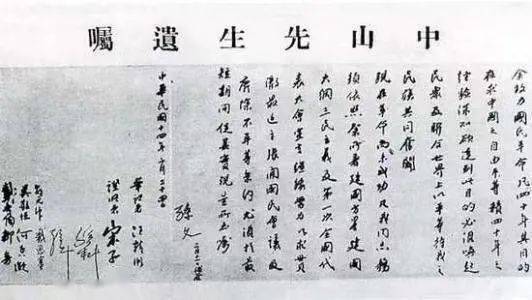 中山先生遺囑
余致力國民革命凡四十年其目的
在求中國之自由平等積四十年之
經驗深知欲達到此目的必須喚起
民衆及聯合世界上以平等待我之
民族共同奮鬥
現在革命尚未成功凡我同志務
須依照余所著建國方畧建國
大綱三民主義及第一次全國代
表大會宣言繼續努力以求貫
澈最近主張開國民會議及
廢除不平等條約尤須於最
短期間促其實現是所至囑
孫文
中華民國十四年二月二十四日
筆記者 汪精衛
證明者 宋子文
孫科
吳敬恆 何香凝